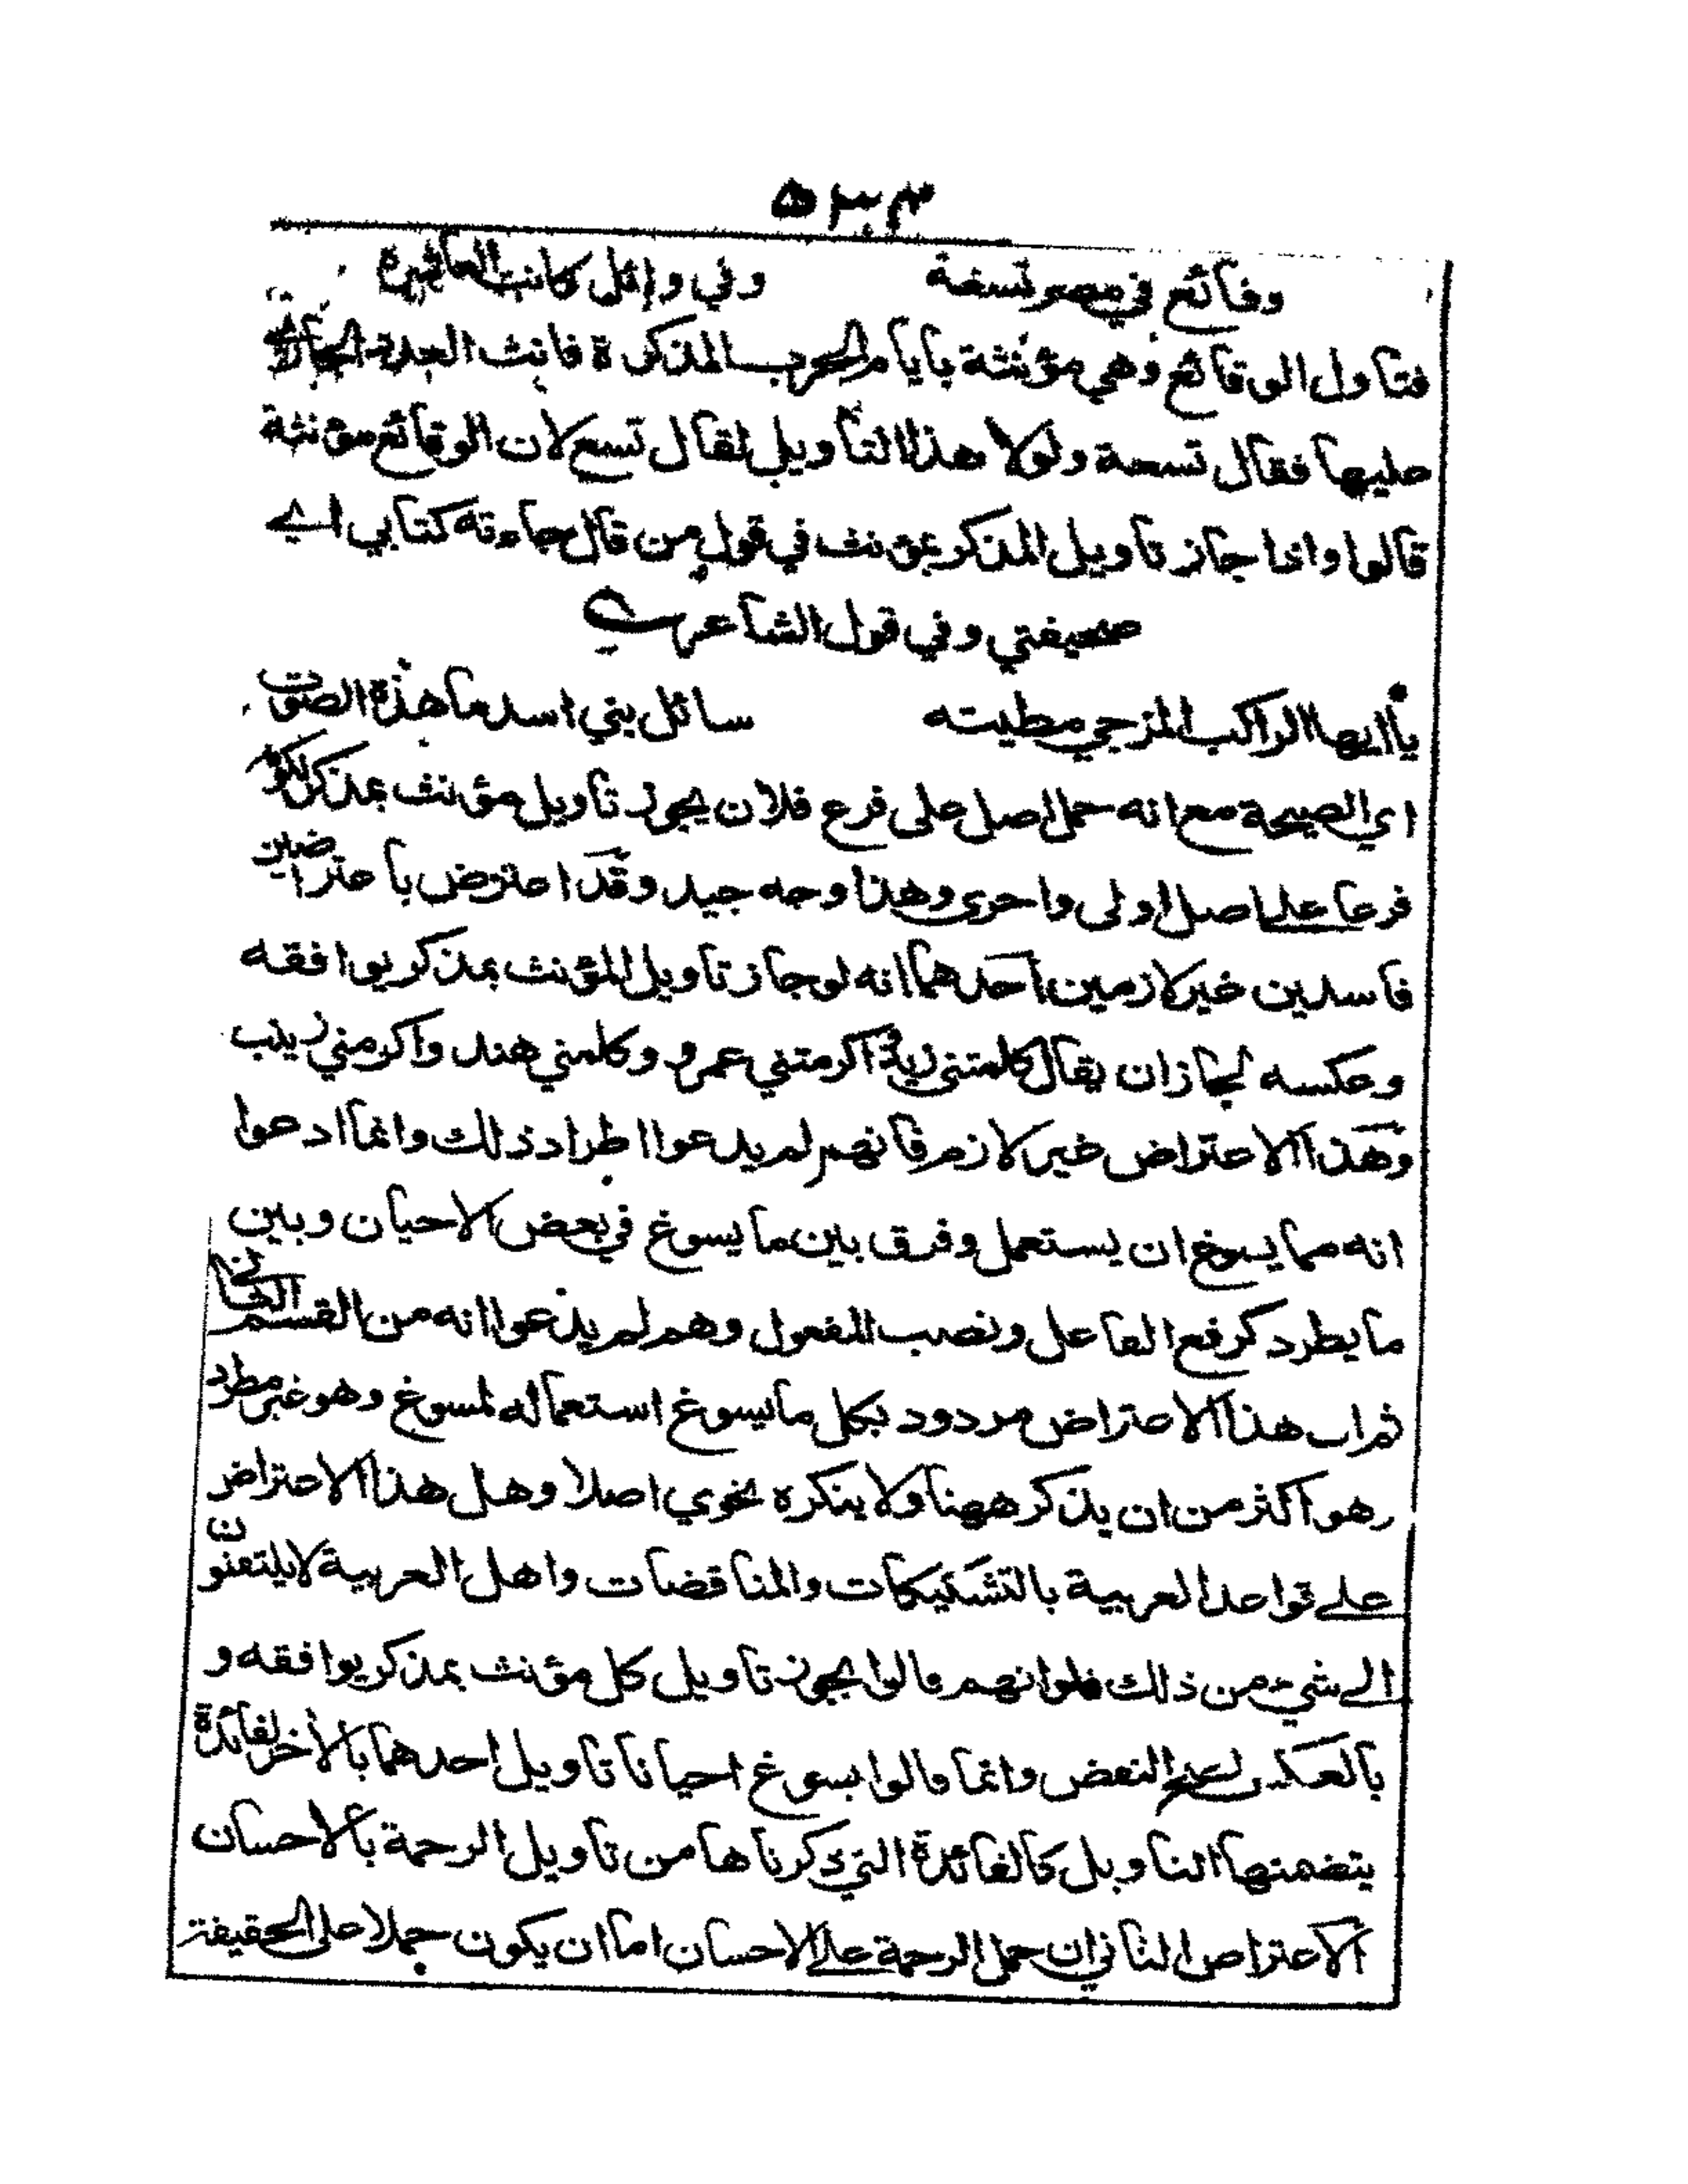 وقائع في مضر تسعة وفي وائل كانت العاشرة
فتأول الوقائع وهي مؤنثة بأيام الحرب المذكرة فانث العدد الجاري
عليها فقال تسعة ولولا هذا التأويل لقال تسع لان الوقائع مؤنثة
قالوا واذا جاز تاويل المذكر بمؤنث في قول من قال جاءته كتابي اے
صحيفتي وفي قول الشاعر
يا ايها الراكب المزجي مطيته سائل بني اسد ما هذه الصوت
اي الصيحة مع انه حمل اصل على فرع فلان يجوز تأويل مؤنث بمذكر لكونه
فرعا على اصل اولى واحرى وهذا وجه جيد وقد اعترض باعتراضين
فاسدين غير لازمين احدهما انه لو جاز تأويل المؤنث بمذكر يوافقه
وعكسه لجاز ان يقال كلمتني زيد واكرمتني عمرو وكلمني هند واكرمني زينب
وهذا الاعتراض غير لازم فانهم لم يدعوا اطراد ذلك وانما ادعوا
انه مما يسوغ ان يستعمل وفرق بين ما يسوغ في بعض الاحيان وبين
ما يطرد كرفع الفاعل ونصب المفعول وهم لم يدعوا انه من القسم الثاني
ثم ان هذا الاعتراض مردود بكل ما يسوغ استعماله لمسوغ وهو غير مطرد
وهو اكثر من ان يذكر ههنا ولا ينكره نحوي اصلا وهل هذا الا اعتراض
على قواعد العربية بالتشكيكات والمناقضات واهل العربية لا يلتفتون
الى شيء من ذلك فلو انهم قالوا يجوز تأويل كل مؤنث بمذكر يوافقه و
بالعكس لصح النقض وانما قالوا يسوغ احيانا تأويل احدهما بالآخر لفائدة
يتضمنها التأويل كالفائدة التي ذكرناها من تأويل الرحمة بالاحسان
الاعتراض الثاني ان حمل الرحمة على الاحسان اما ان يكون حملا على الحقيقة